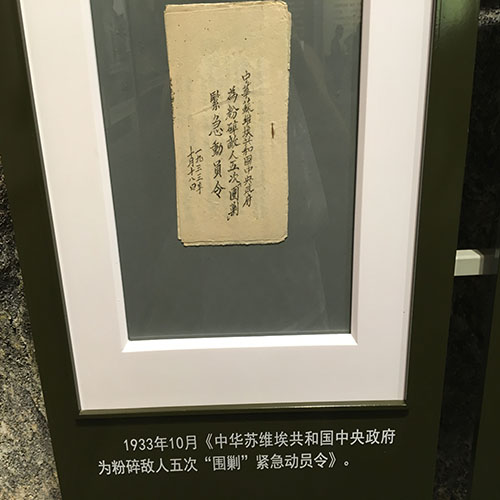 中華蘇維埃共和國中央政府
為粉碎敵人五次圍剿
緊急動員令
一九三三年
十月十八日
1933年10月《中华苏维埃共和国中央政府
为粉碎敌人五次“围剿”紧急动员令》。